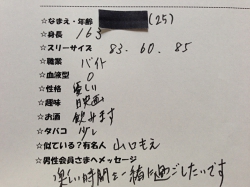 ☆なまえ・年齢 (25)
☆身長 163
☆スリーサイズ 83. 60. 85
☆職業 バイト
☆血液型 O
☆性格 優しい
☆趣味 映画
☆お酒 飲みます
☆タバコ 少し
☆似ている?有名人 山口もえ
☆男性会員さまへメッセージ
楽しい時間を一緒に過ごしたいです